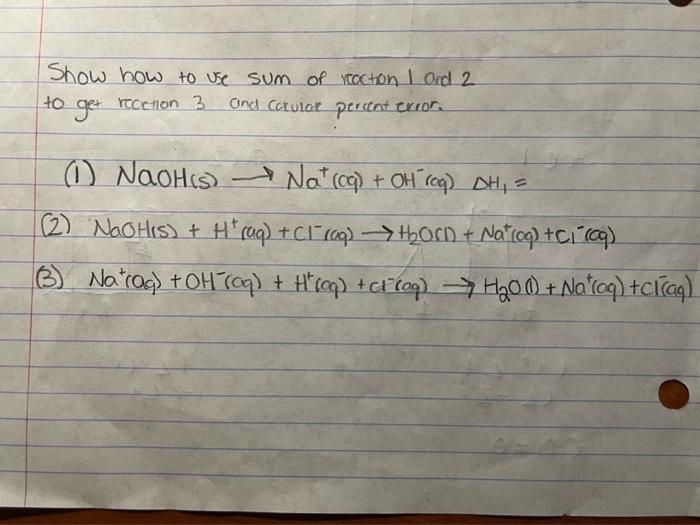 Show how to use sum of reaction 1 and 2
to get reaction 3 and calculate percent error.
(1) NaOH(s) → Na⁺(aq) + OH⁻(aq) ΔH₁ =
(2) NaOH(s) + H⁺(aq) + Cl⁻(aq) → H₂O(l) + Na⁺(aq) + Cl⁻(aq)
(3) Na⁺(aq) + OH⁻(aq) + H⁺(aq) + Cl⁻(aq) → H₂O(l) + Na⁺(aq) + Cl⁻(aq)